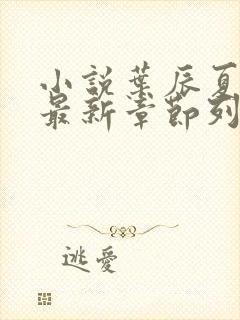 小說葉辰夏
最新章節列
逃愛